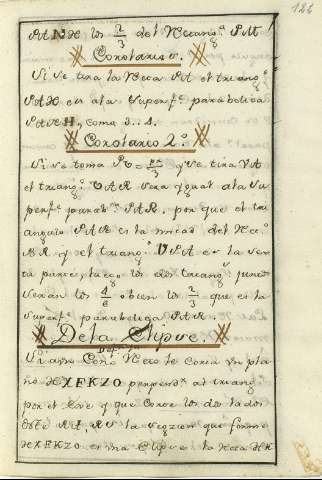 126
PANX los 2/3 del Rectang.º PM
Corolario 1.
Si se tira la Recta PA el triang.º
PAX es a la superf.e parabolica
PARH, como 3..4.
Corolario 2.º
Si se toma PV = PX/3 y se tira VA
el triang.º VAR sera ygual a la su
perf.e parab.ca PAR. por que el tri
angulo PAR es la mitad del Rec.º
BR y el triang.º VPA es la sex
ta parte, luego los dos triang.s juntos
seran los 4/6 obien los 2/3 que es la
superf.e parabolica PAR.
De la Elipse.
Def.
Si a un Cono Recto le corta un pla
no XFKZO perpend.r al triang.
por el Exe y que corte los dos lados
RV la seczion que forma
XFKZO es una Elipse la Recta